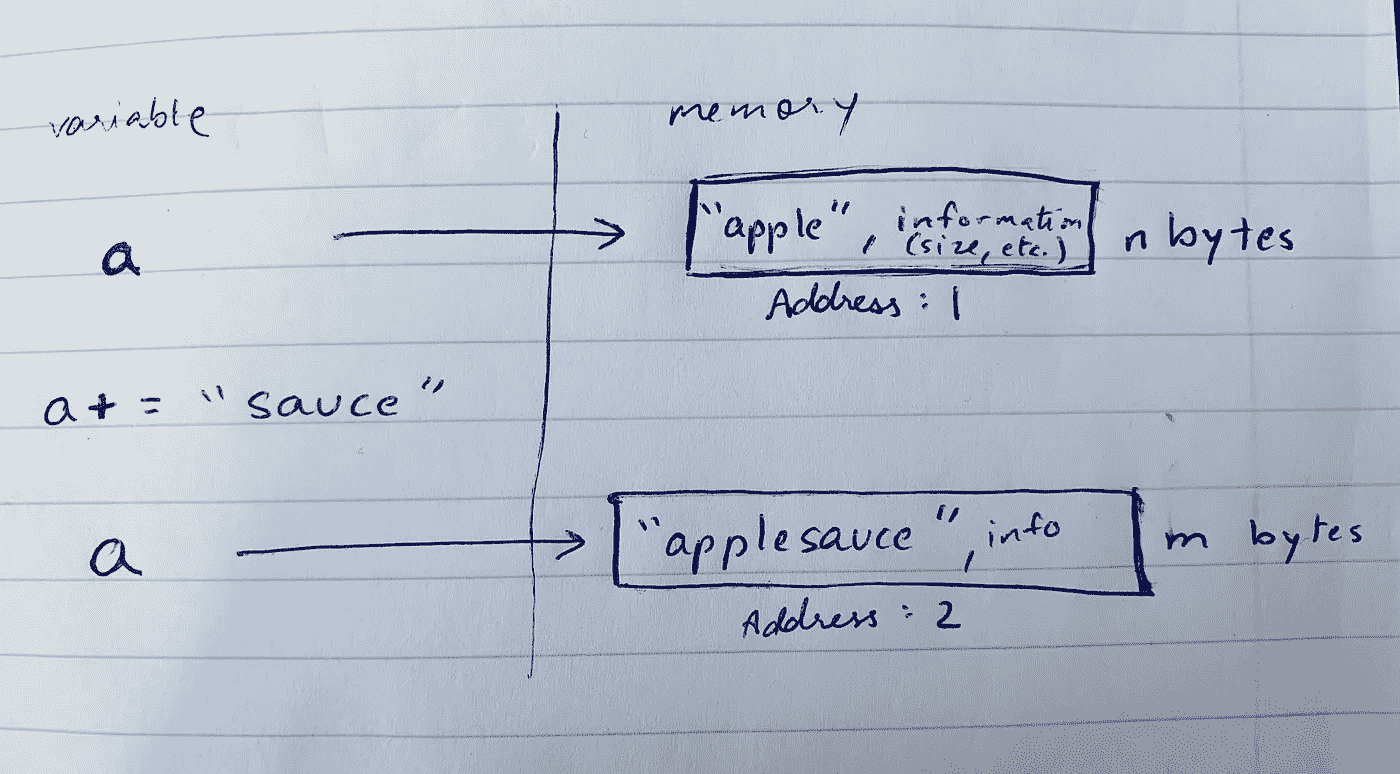 variable
memory
a
"apple", information
(size, etc.)
n bytes
Address : 1
a+ = "sauce"
a
"applesauce", info
m bytes
Address : 2